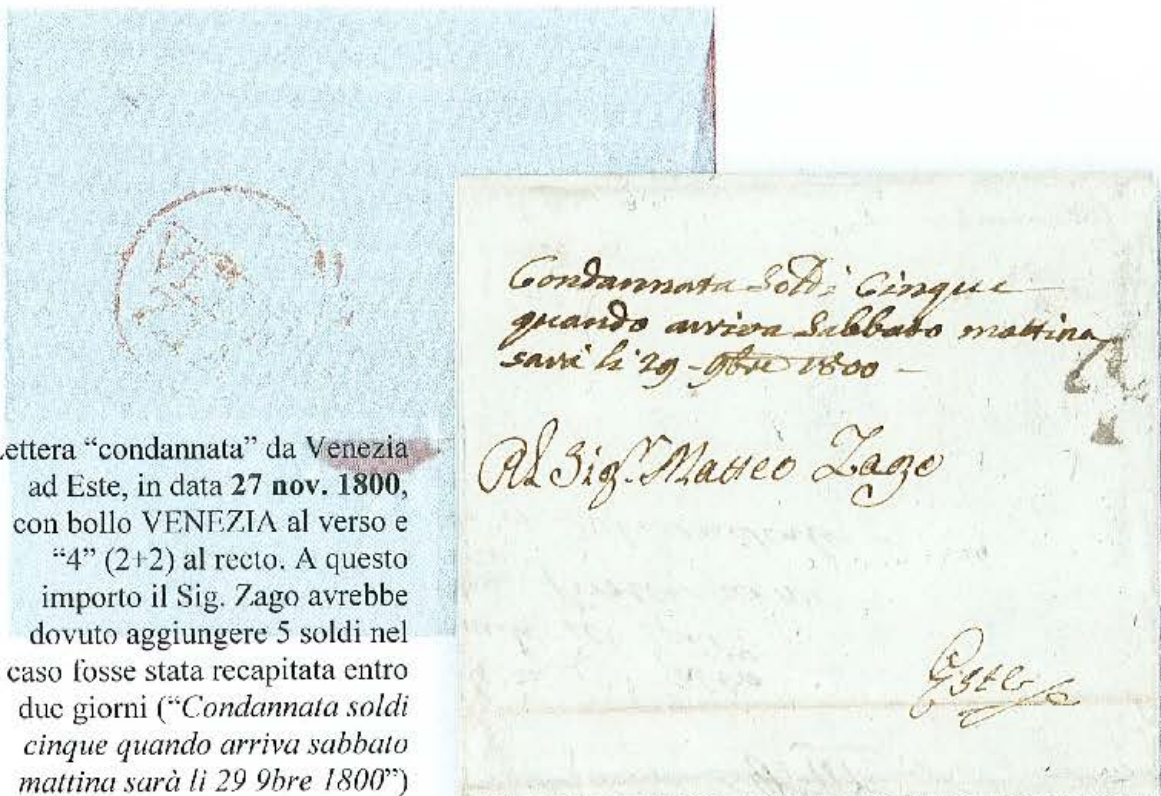 ettera “condannata” da Venezia
ad Este, in data 27 nov. 1800,
con bollo VENEZIA al verso e
“4” (2+2) al recto. A questo
importo il Sig. Zago avrebbe
dovuto aggiungere 5 soldi nel
caso fosse stata recapitata entro
due giorni (“Condannata soldi
cinque quando arriva sabbato
mattina sarà li 29 9bre 1800”)
Condannata Soldi Cinque
quando arriva Sabbato mattina
sarà li 29 - 9bre 1800 -
Al Sigr. Matteo Zago
Este